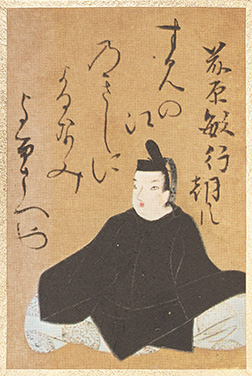 藤原敏行朝臣
すみの江
乃きしに
よるなみ
よるさへや